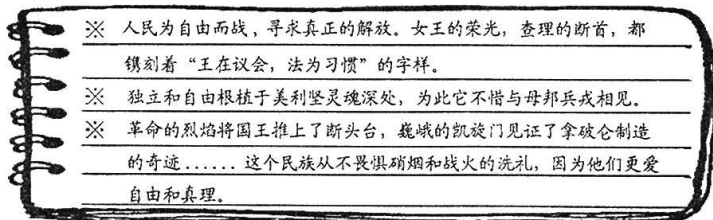 ※ 人民为自由而战，寻求真正的解放。女王的荣光，查理的断首，都
镌刻着“王在议会，法为习惯”的字样。
※ 独立和自由根植于美利坚灵魂深处，为此它不惜与母邦兵戎相见。
※ 革命的烈焰将国王推上了断头台，巍峨的凯旋门见证了拿破仑制造
的奇迹......这个民族从不畏惧硝烟和战火的洗礼，因为他们更爱
自由和真理。